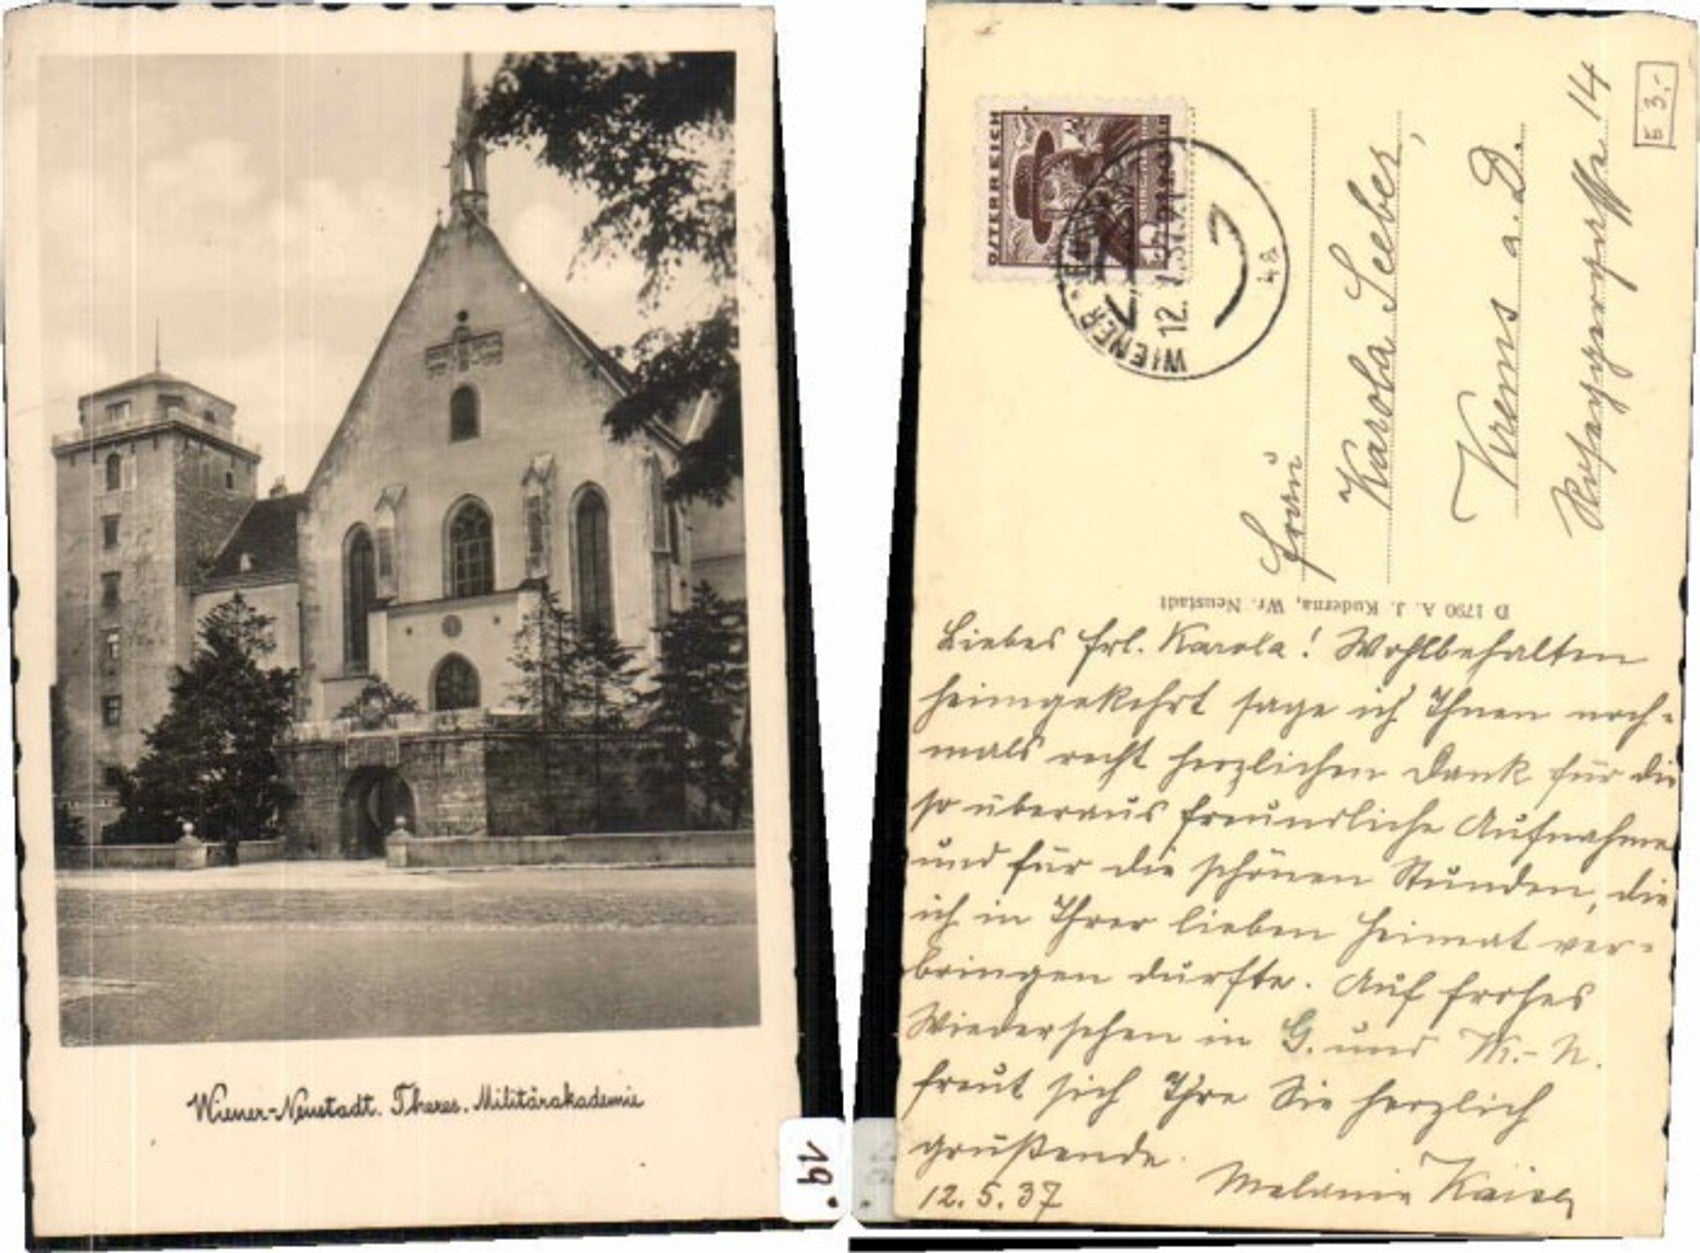 Wiener-Neustadt. Theres. Militärakademie
19
ÖSTERREICH
WIENER
12.
4a
E 3,-
Frau
Karola Seeber,
Krems a. D.
14
D 1790 A. J. Kuderna, Wr. Neustadt
Liebes Frl. Karola! Wohlbehalten
heimgekehrt sage ich Ihnen noch-
mals recht herzlichen Dank für die
so überaus freundliche Aufnahme
und für die schönen Stunden, die
ich in Ihrer lieben Heimat ver-
bringen durfte. Auf frohes
Wiedersehen in G. und W.-N.
freut sich Ihre Sie herzlich
grüßende
Melanie
12.5.37